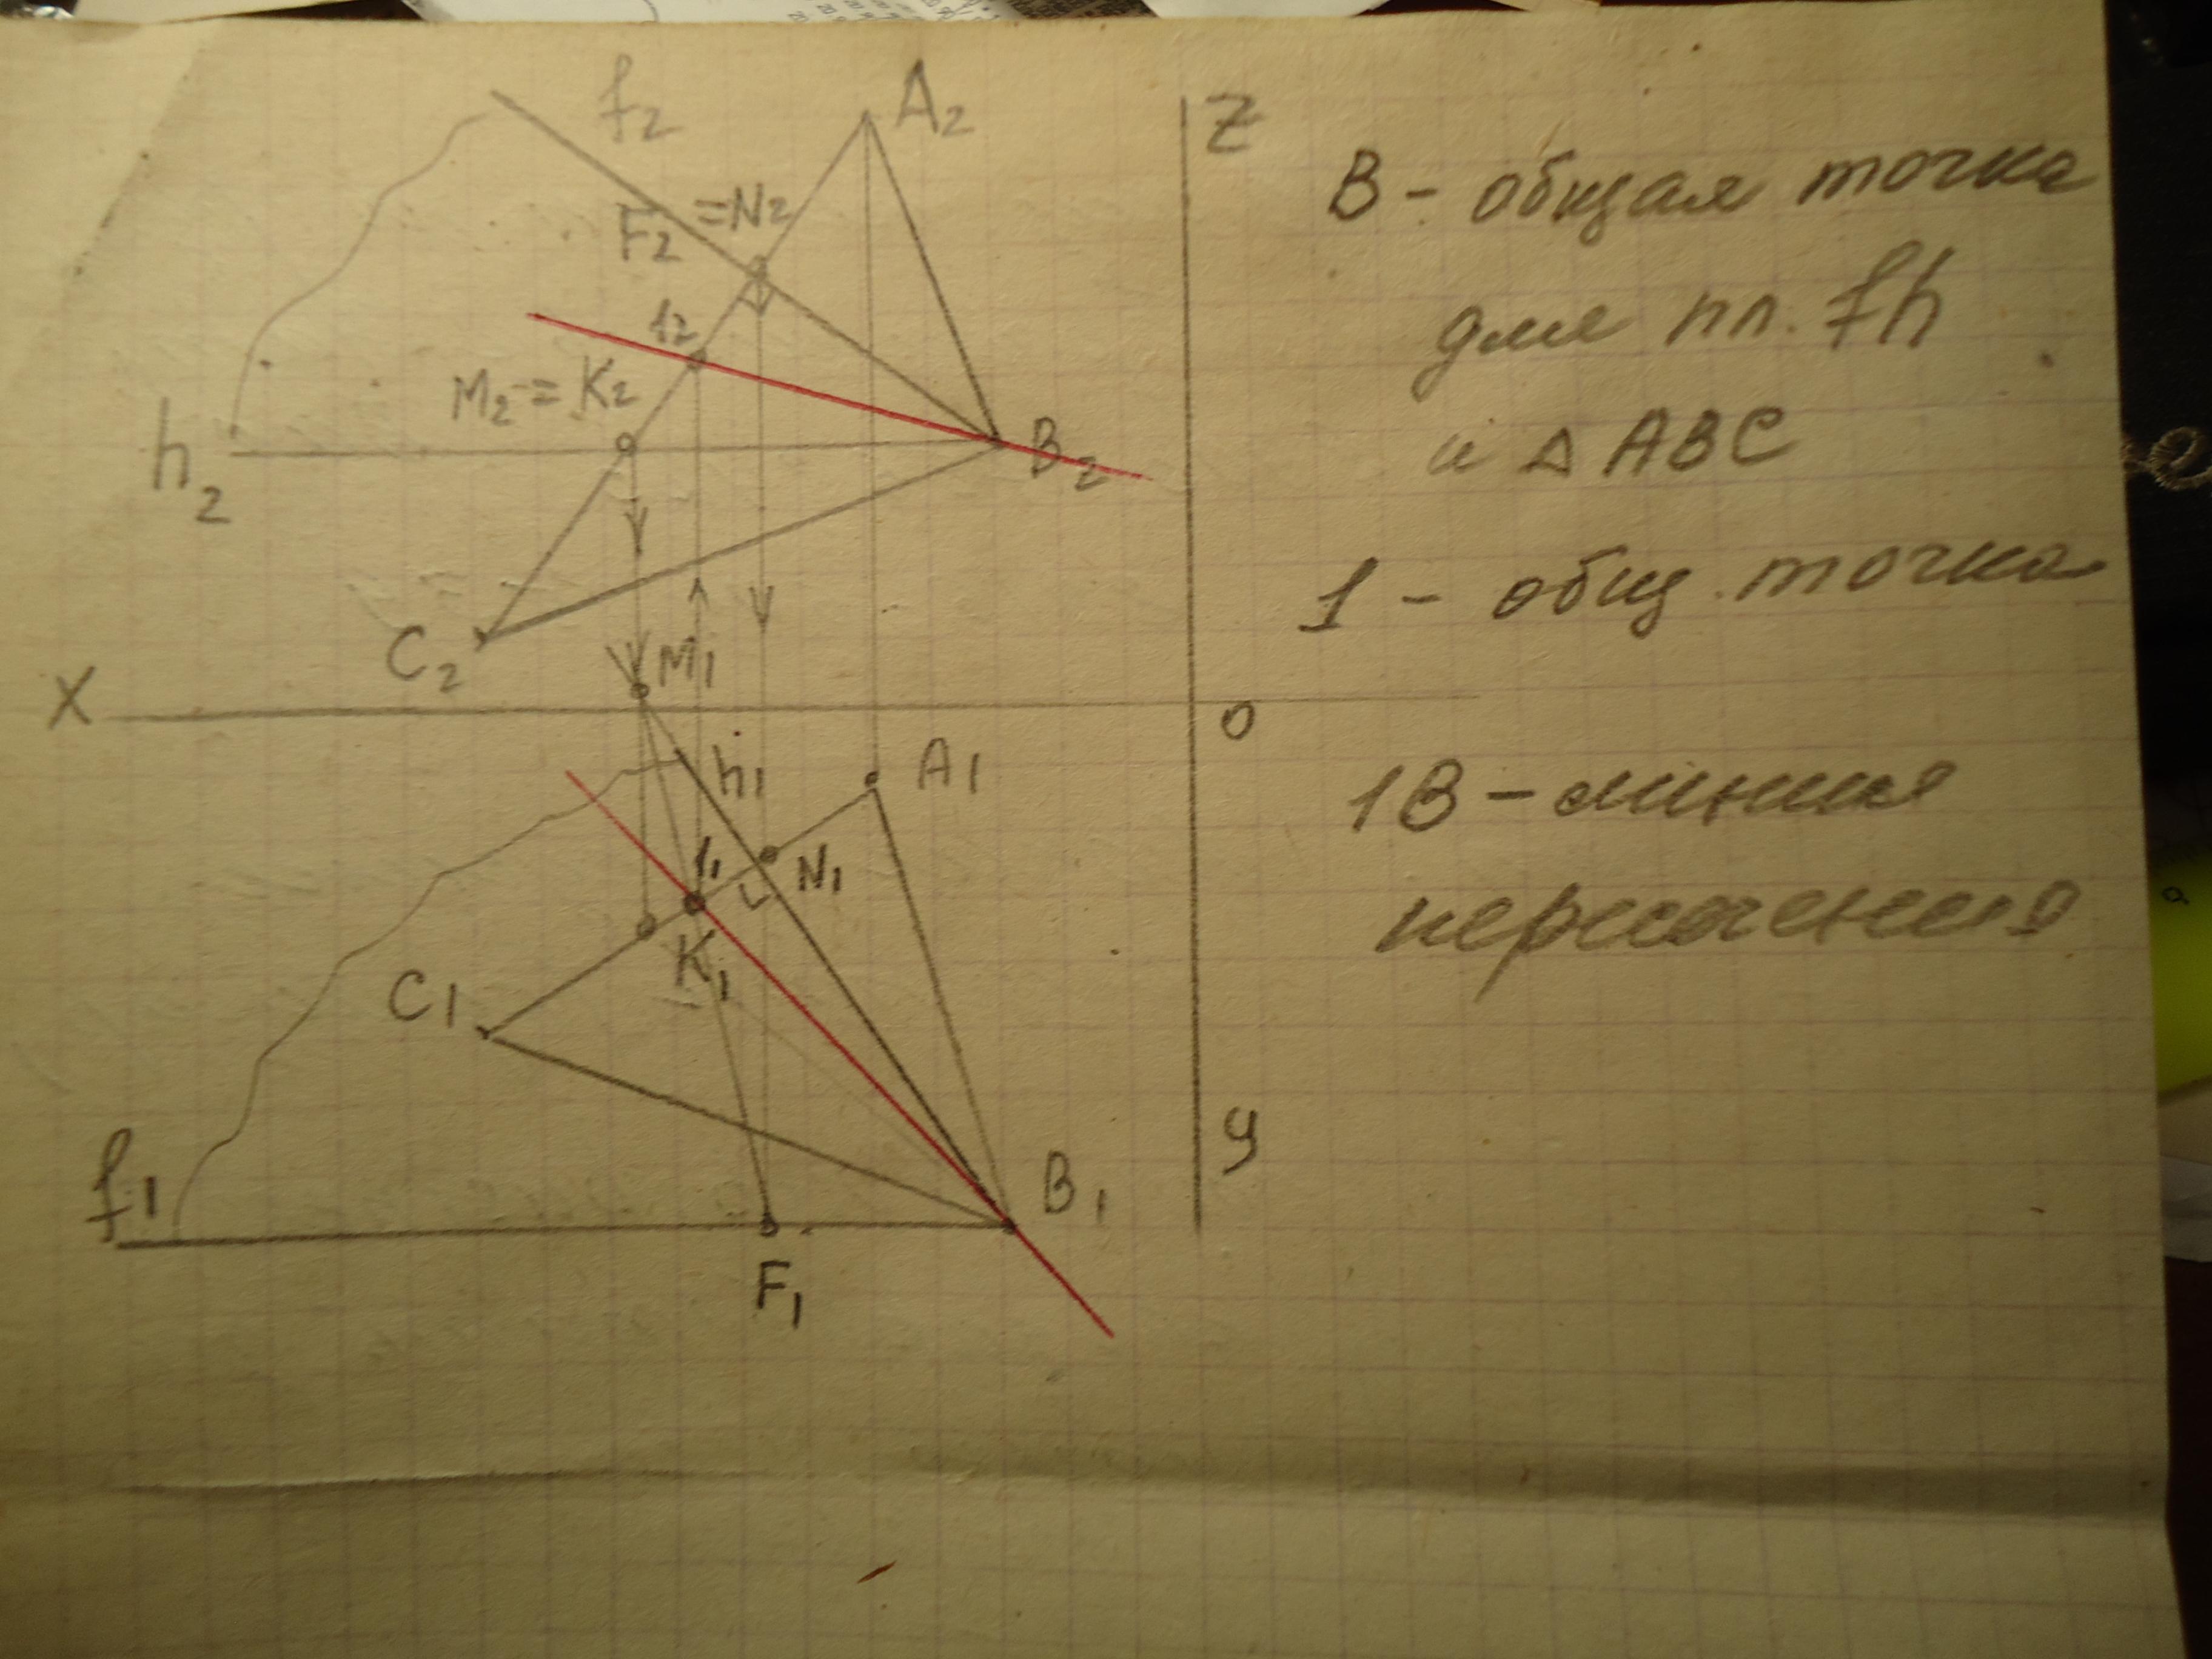 f₂
A₂
Z
F₂ =N₂
1₂
M₂ = K₂
h₂
B₂
C₂
M₁
X
O
h₁
A₁
1₁
N₁
K₁
C₁
f₁
B₁
F₁
y
B - общая точка
для пл. fh
и △ ABC
1 - общ. точка
1B - линия
пересечения